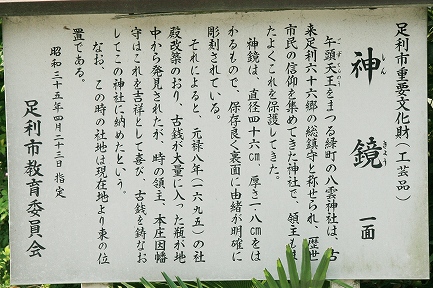 足利市重要文化財(工芸品)
神鏡 一面
しん きょう
牛頭天王をまつる緑町の八雲神社は、古
ごずてんのう
来足利六十六郷の総鎮守と称せられ、歴世
市民の信仰を集めてきた神社で、領主も
たよくこれを保護してきた。
神鏡は、直径四十六cm、厚さ二・八cmをは
かるもので、保存良く裏面に由緒が明確に
彫刻されている。
それによると、元禄八年(一六九五)の社
殿改築のおり、古銭が大量に入った瓶が地
中から発見されたが、時の領主、本庄因幡
守はこれを吉祥として喜び、古銭を鋳なお
してこの神社に納めたという。
なお、この時の社地は現在地より東の位
置である。
昭和三十五年四月二十三日 指定
足利市教育委員会